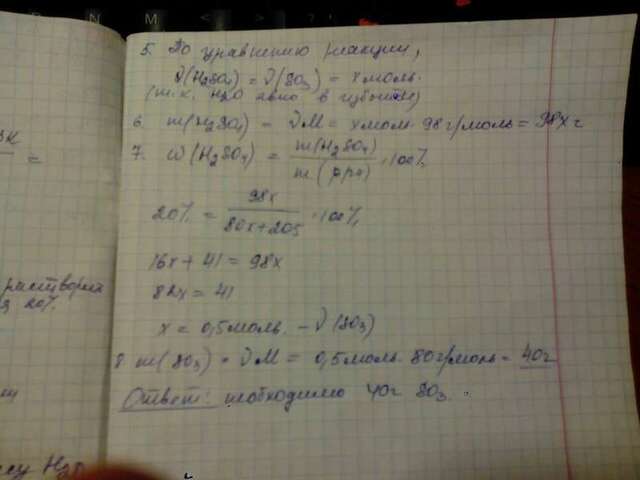 5. По уравнению реакции,
ЗК
ν(H₂SO₄) = ν(SO₃) = x моль.
=
(т.к. H₂O явно в избытке)
6. m(H₂SO₄) = νM = x моль · 98 г/моль = 98x г
7. ω(H₂SO₄) = m(H₂SO₄) / m(р-ра) · 100%
20% = 98x / 80x+205 · 100%
16x + 41 = 98x
раствора
20%.
82x = 41
x = 0,5 моль. – ν(SO₃)
8. m(SO₃) = νM = 0,5 моль · 80 г/моль = 40г
Ответ: необходимо 40г SO₃.
H₂O